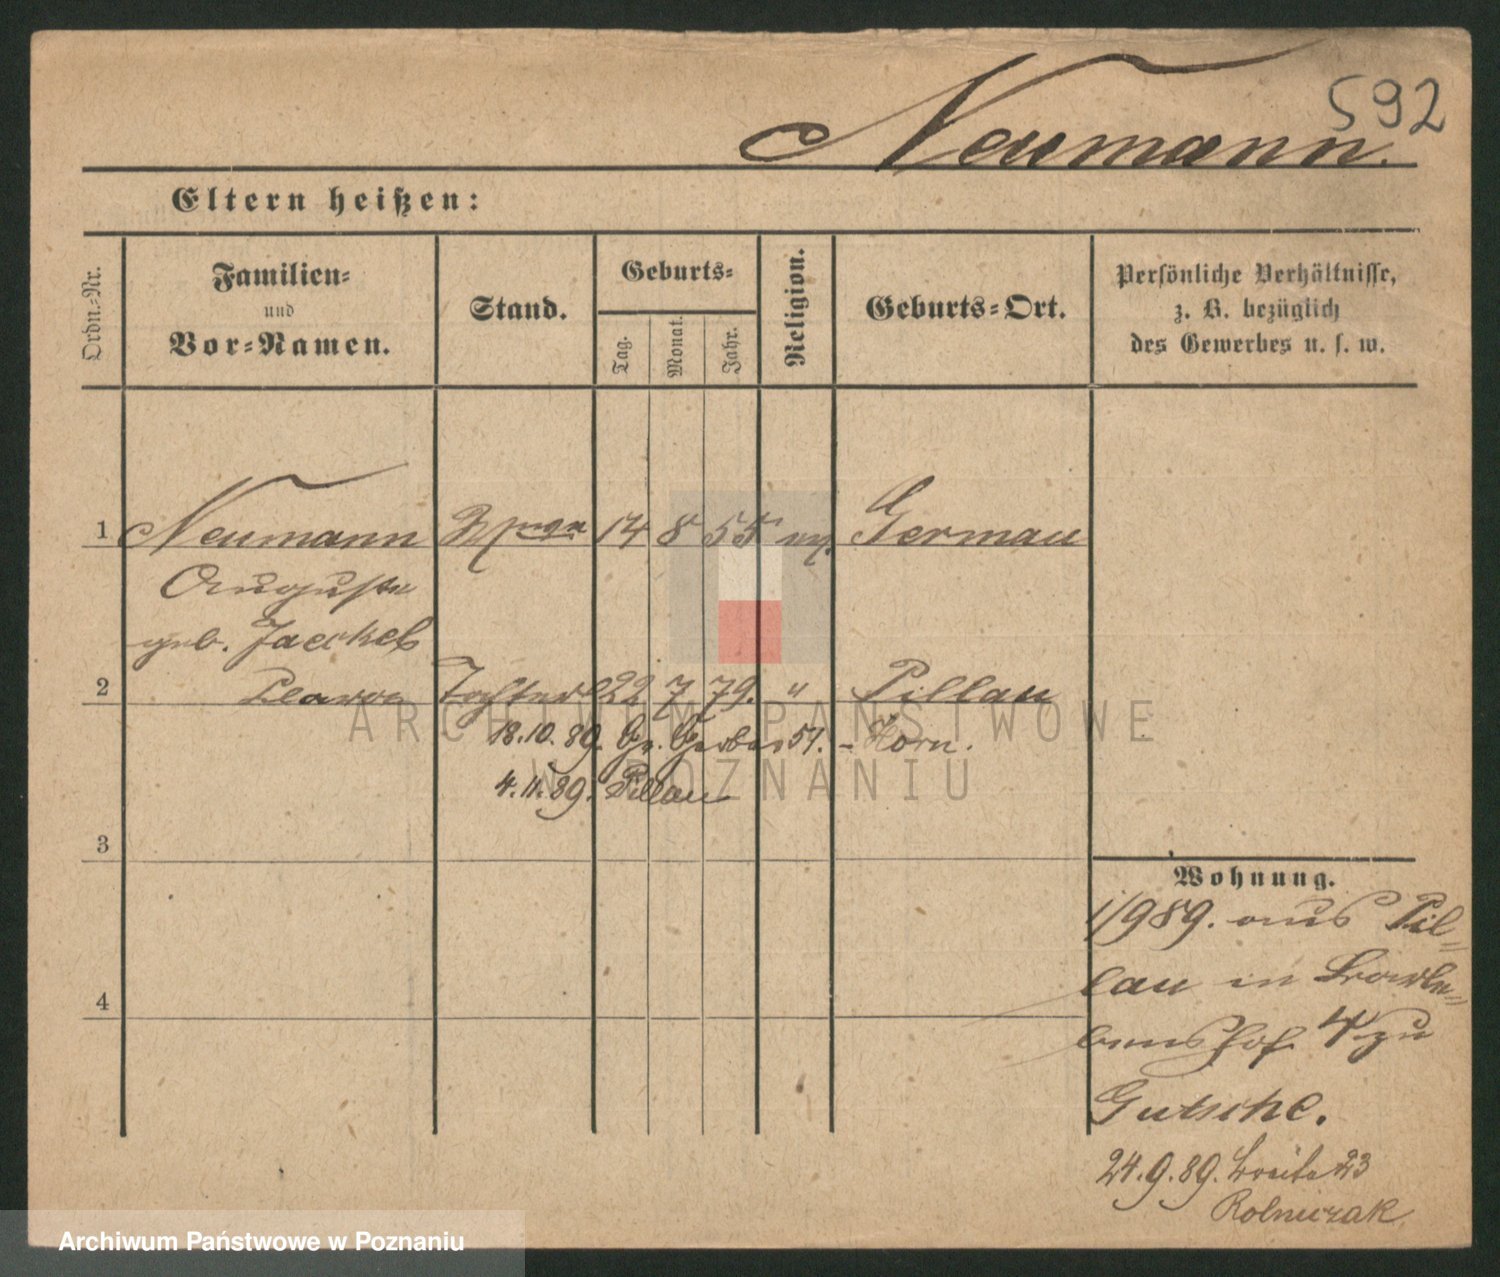 592
Neumann.
Eltern heißen:
Ordn.-Nr.
Familien-
und
Vor-Namen.
Stand.
Geburts-
Tag.
Monat.
Jahr.
Religion.
Geburts-Ort.
Persönliche Verhältnisse,
z. B. bezüglich
des Gewerbes u. s. w.
1 Neumann 14 8 55 Germau
Auguste
geb. Jaeckel
2 Tochter 22 7 79. " Pillau
18.10.89. Gr. Gerber 51. - Horn.
4.11.89. Pillau
3
4
Wohnung.
1/989. aus Pil-
lau in
4 zu
Gutsche.
24.9.89. Breite 23
Rolniczak
ARCHIWUM PAŃSTWOWE
W POZNANIU
Archiwum Państwowe w Poznaniu